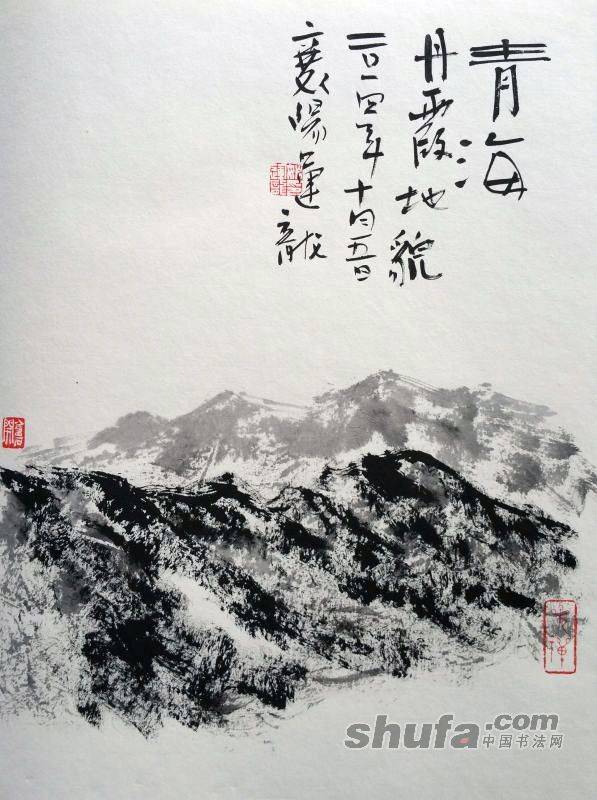 青海
丹霞地貌
二〇一四年十月五日
襄陽運龍
shufa.com
中国书法网